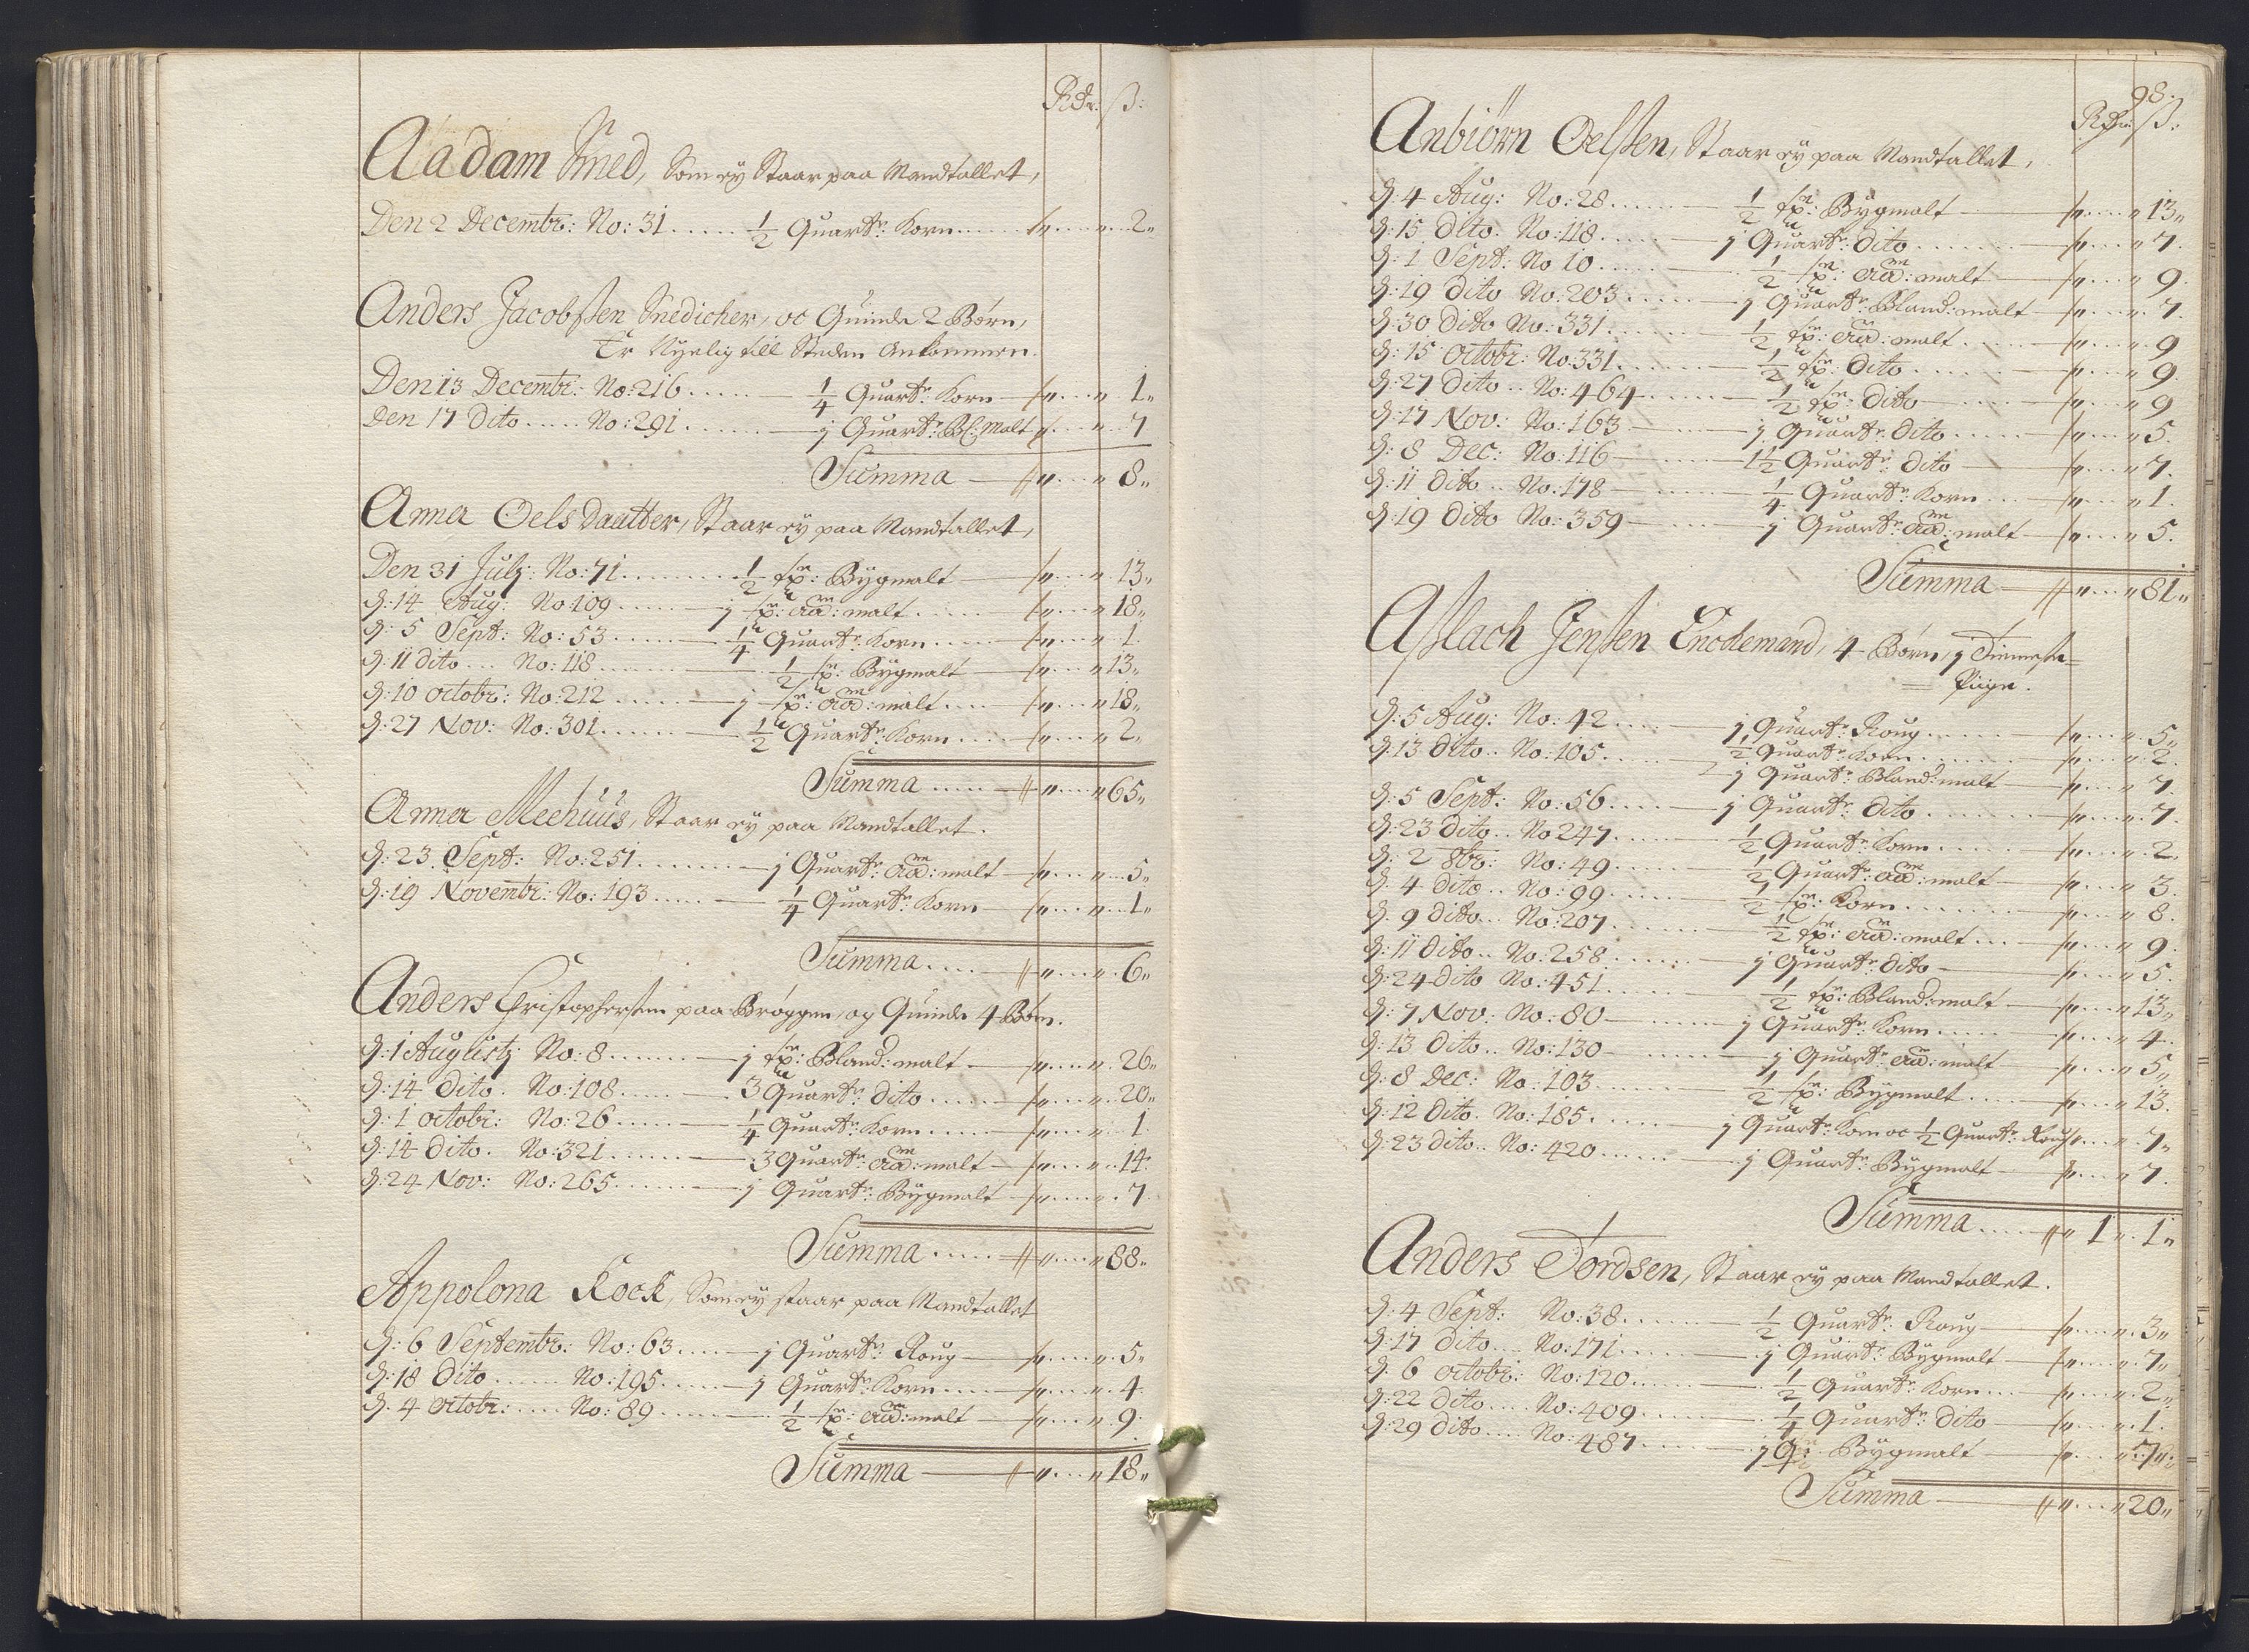 Rdr: ß:
Aadam Smed, Som ey Staar paa Mandtallet,
Den 2 Decembr: No: 31 ..... ½ Quartr: Korn ..... " .... " 2 "
Anders Jacobsen Snedicher, oc Quinde 2 Børn,
Er Nyelig till Steden Ankommen.
Den 13 Decembr: No: 216 ..... ¼ Quartr: Korn " .... " 1 "
Den 17 Dito ..... No: 291 ..... j Quartr: Bl: Malt " .... " 7
Summa " .... " 8 "
Anna Oels Daatter, Staar ey paa Mandtallet,
Den 31 July: No: 71 ..... ½ tr: Bygmalt " .... " 13 "
d: 14 Aug: No 109 ..... j tr: aad: malt " .... " 18 "
d: 5 Sept: No: 53 ..... ¼ Quartr: Korn " .... " 1
d: 11 dito ... No: 118 ..... ½ tr: Bygmalt " .... " 13 "
d: 10 octobr: No: 212 ..... j tr: aad: malt " .... " 18 "
d: 27 Nov: No: 301 ..... ½ Quartr: Korn " .... " 2 "
Summa ..... " .... " 65 "
Anna Meehuus, Staar ey paa Mandtallet.
d: 23 Sept: No: 251 ..... j Quartr: aad: malt " .... " 5 "
d: 19 Novembr: No: 193 ..... ¼ Quartr: Korn " .... " 1 "
Summa .... " .... " 6 "
Anders Christophersen paa Bryggen, og Quinde 4 Børn.
d: 1 Augusty No: 8 ..... j tr: Bland: malt " .... " 26 "
d: 14 dito. No: 108 ..... 3 Quartr: dito " .... " 20 "
d: 1 octobr: No: 26 ..... ¼ Quartr: Korn " .... " 1
d: 14 dito. No: 321 ..... 3 Quartr: aad: malt " .... " 14
d: 24 Nov: No: 265 ..... j Quartr: Bygmalt " .... " 7
Summa ..... " .... " 88 "
Appolona Kock, Som ey staar paa Mandtallet
d: 6 Septembr: No: 63 .... j Quartr: Roug " .... " 5 "
d: 18 dito ..... No: 195 ..... j Quartr: Korn " .... " 4
d: 4 octobr: .... No: 89 ..... ½ tr: aad: malt " .... " 9
Summa " .... " 18 "
98.
Rdr: ß:
Anbiørn Oelsen, Staar ey paa Mandtallet,
d: 4 Aug: No: 28 ..... ½ tr: Bygmalt " .... " 13 "
d: 15 dito. No: 118 ..... j Quartr: dito " .... " 7
d: 1 Sept: No 10 ..... ½ tr: aad: malt " .... " 9
d: 19 dito No: 203 ..... j Quartr: Bland: malt " .... " 7
d: 30 dito No: 331 ..... ½ tr: aad: malt " .... " 9
d: 15 octobr: No: 331 ..... ½ tr: dito " .... " 9
d: 27 dito .. No: 464 ..... ½ tr: dito " .... " 9
d: 17 Nov: No: 163 ..... j Quartr: dito " .... " 5
d: 8 Dec: No: 116 ..... 1½ Quartr: dito " .... " 7
d: 11 dito .. No: 178 ..... ¼ Quartr: Korn " .... " 1
d: 19 dito No: 359 ..... j Quartr: aad: malt " .... " 5
Summa " .... " 81 "
Aslach Jensen Enckemand, 4 Børn, j Tieneste
Piige.
d: 5 Aug: No: 42 .... j Quartr: Roug " .... " 5 "
d: 13 dito .. No: 105 ..... ½ Quartr: Korn " .... " 2
j Quartr: Bland: malt " .... " 7
d: 5 Sept: No: 56 ..... j Quartr: dito " .... " 7
d: 23 dito .. No 247 ..... ½ Quartr: Korn " .... " 2
d: 2 8br: No: 49 ..... ½ Quartr: aad: malt " .... " 3
d: 4 dito .. No: 99 ..... ½ tr: Korn " .... " 8
d: 9 dito .. No: 207 ..... ½ tr: aad: malt " .... " 9
d: 11 dito .. No: 258 ..... j Quartr: dito " .... " 5
d: 24 dito No: 451 ..... ½ tr: Bland: malt " .... " 13 "
d: 7 Nov: No: 80 ..... j Quartr: Korn " .... " 4
d: 13 dito .. No: 130 ..... j Quartr: aad: malt " .... " 5 "
d: 8 Dec: No: 103 ..... ½ tr: Bygmalt " .... " 13
d: 12 dito. No: 185 ..... j Quartr: Korn oc ½ Quartr: Roug " .... " 7 "
d: 23 dito .. No: 420 ..... j Quartr: Bygmalt " .... " 7
Summa .... " 1 " 1 "
Anders Tordsen, Staar ey paa Mandtallet.
d: 4 Sept: No: 38 ..... ½ Quartr: Roug " .... " 3 "
d: 17 dito .. No: 171 ..... j Quartr: Bygmalt " .... " 7 "
d: 6 octobr: No: 120 ..... ½ Quartr: Korn " .... " 2 "
d: 22 dito .... No: 409 ..... ¼ Quartr: dito " .... " 1
d: 29 dito .... No: 487 ..... j Q: Bygmalt " .... " 7 "
Summa " .... " 20 "